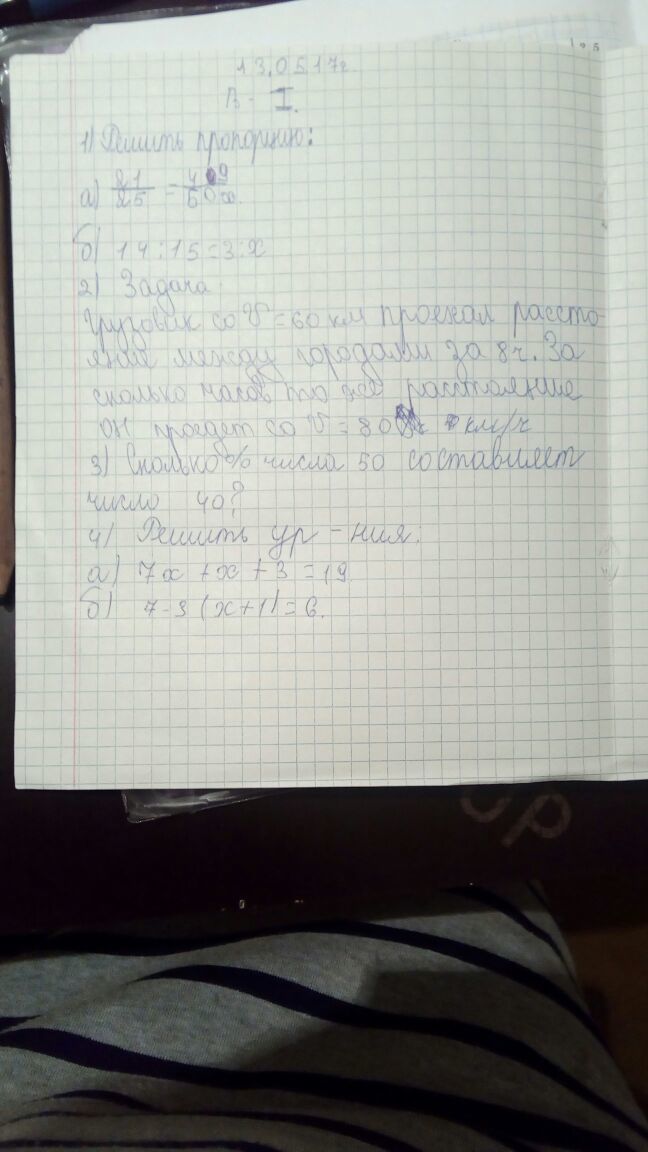 13.05.17г.
В - I.
1) Решить пропорцию:
а) 21/25 = 49/50x
б) 14:15=3:x
2) Задача.
Грузовик со V=60 км проехал рассто-
яние между городами за 8ч. За
сколько часов то же расстояние
он проедет со V=80 км/ч
3) Сколько % числа 50 составляет
число 40?
4) Решить ур-ния:
а) 7x+x+3=19
б) 7-3(x+1)=6.
ор